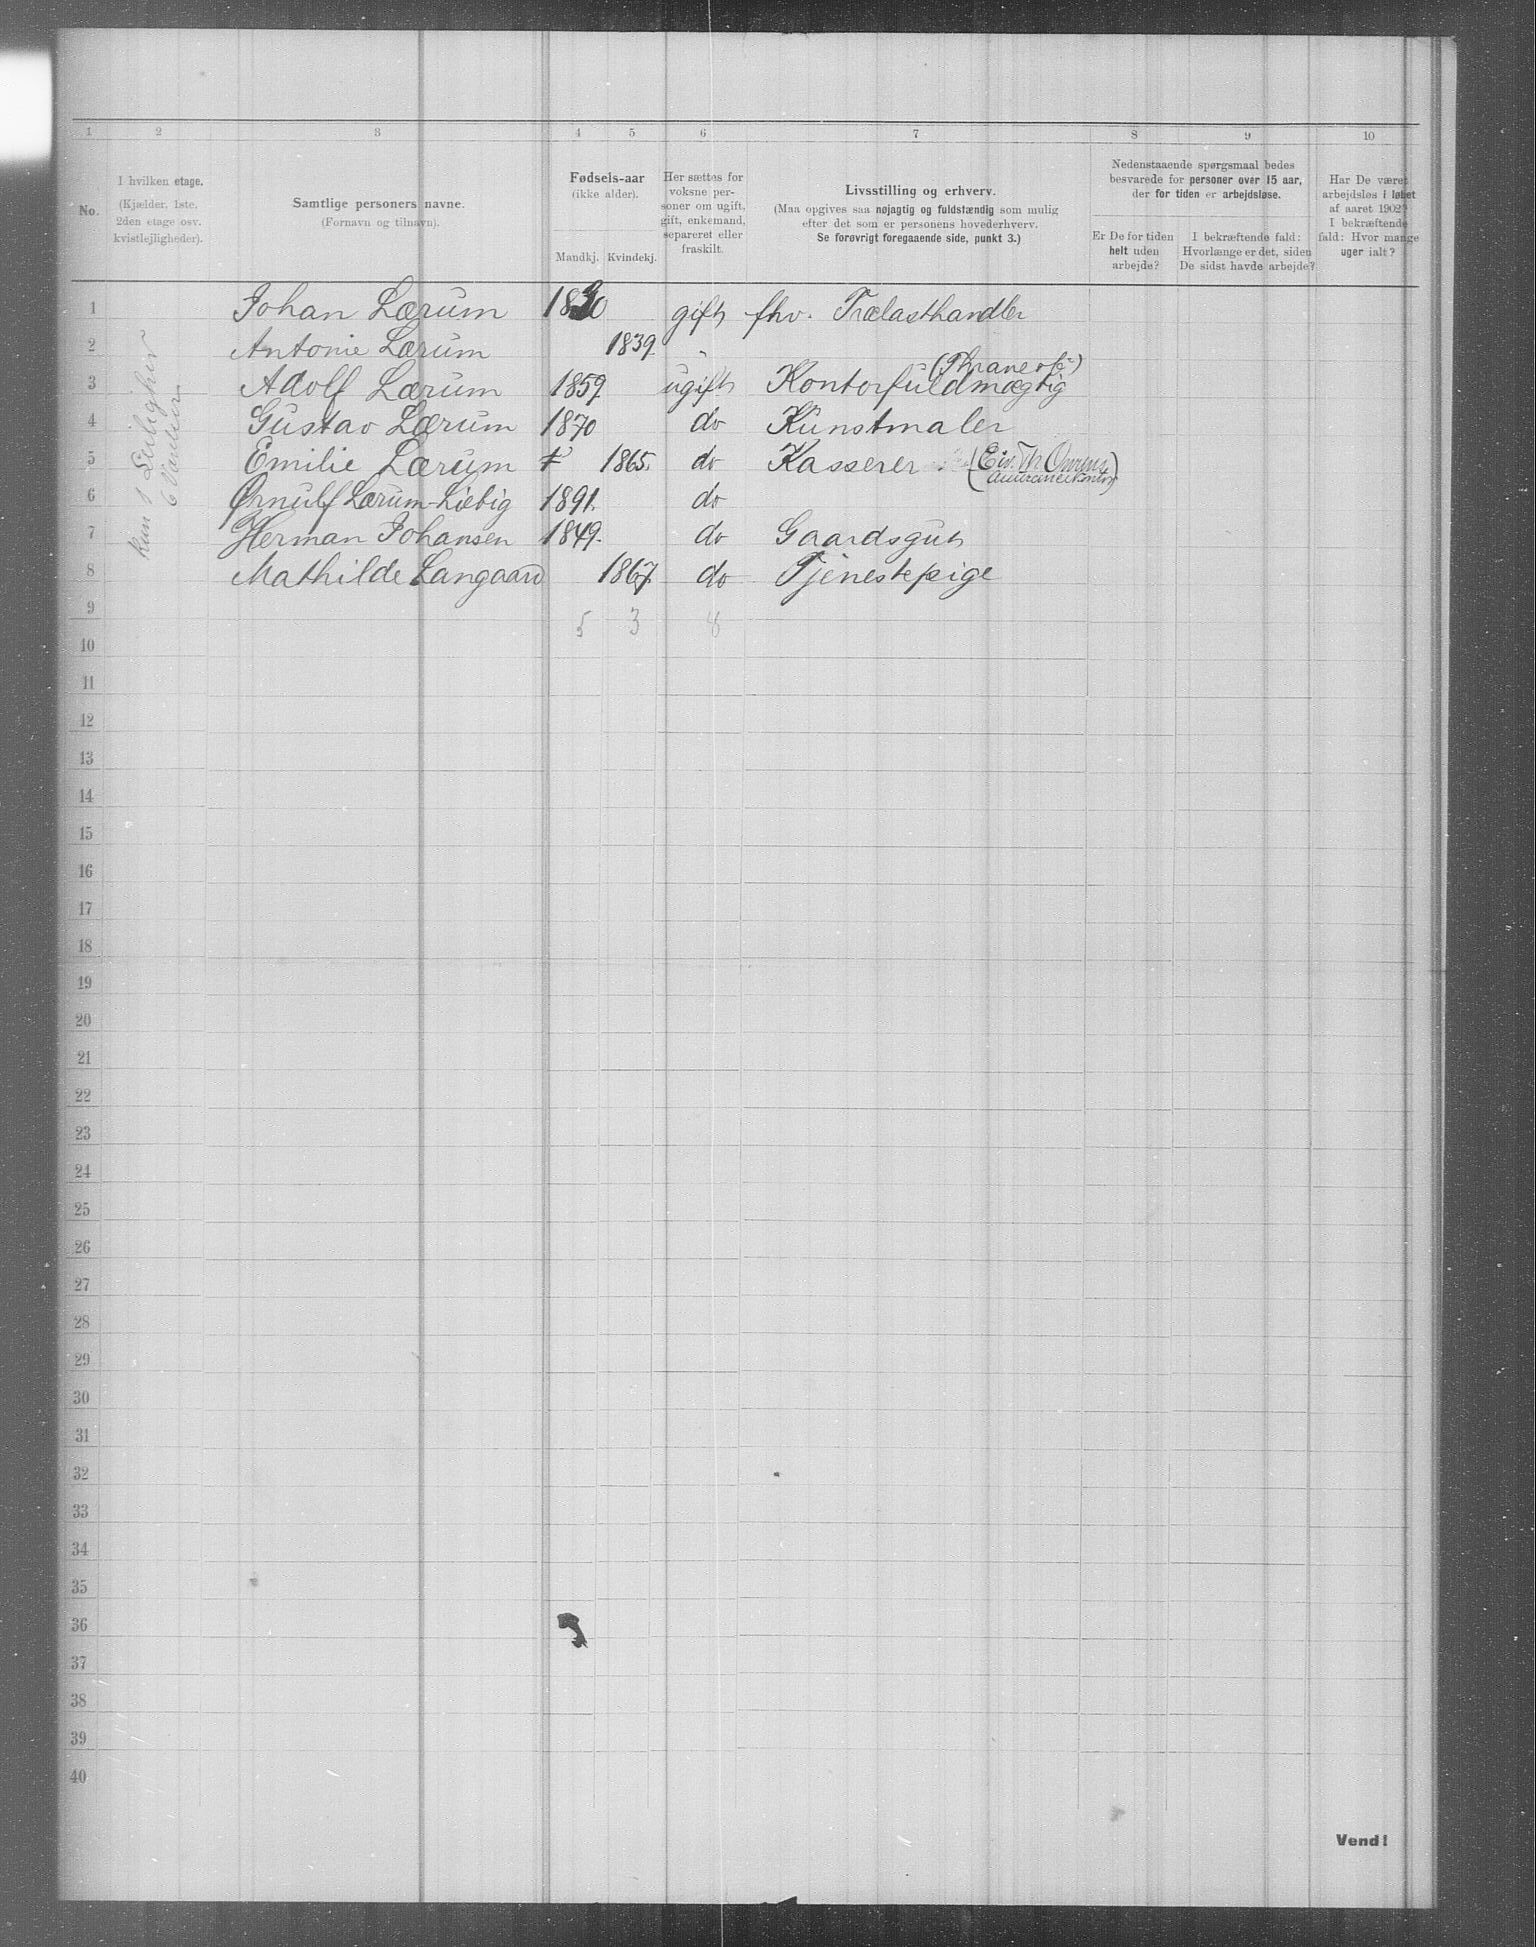 1 2 3 4 5 6 7 8 9 10
No.
I hvilken etage.
(Kjælder, 1ste,
2den etage osv.
kvistlejligheder).
Samtlige personers navne.
(Fornavn og tilnavn).
Fødsels-aar
(ikke alder).
Mandkj. Kvindekj.
Her sættes for
voksne per-
soner om ugift,
gift, enkemand,
separeret eller
fraskilt.
Livsstilling og erhverv.
(Maa opgives saa nøjagtig og fuldstændig som mulig
efter det som er personens hovederhverv.
Se forøvrigt foregaaende side, punkt 3.)
Nedenstaaende spørgsmaal bedes
besvarede for personer over 15 aar,
der for tiden er arbejdsløse.
Er De for tiden
helt uden
arbejde?
I bekræftende fald:
Hvorlænge er det, siden
De sidst havde arbejde?
Har De været
arbejdsløs i løbet
af aaret 1902?
I bekræftende
fald: Hvor mange
uger ialt?
kun 1 Leilighed
6 Værelser
1 Johan Lærum 1830 gift fhv. Trælasthandler
2 Antonie Lærum 1839. "
(Thrane & Co)
3 Adolf Lærum 1859 ugift Kontorfuldmægtig
4 Gustav Lærum 1870 do Kunstmaler
5 Emilie Lærum 1865. do Kasserer
6 Ørnulf Lærum-Liebig 1891. do
7 Herman Johansen 1849. do Gaardsgut
8 Mathilde Langaard 1867 do Tjenestepige
9
5 3 8
10
11
12
13
14
15
16
17
18
19
20
21
22
23
24
25
26
27
28
29
30
31
32
33
34
35
36
37
38
39
40
Vend!